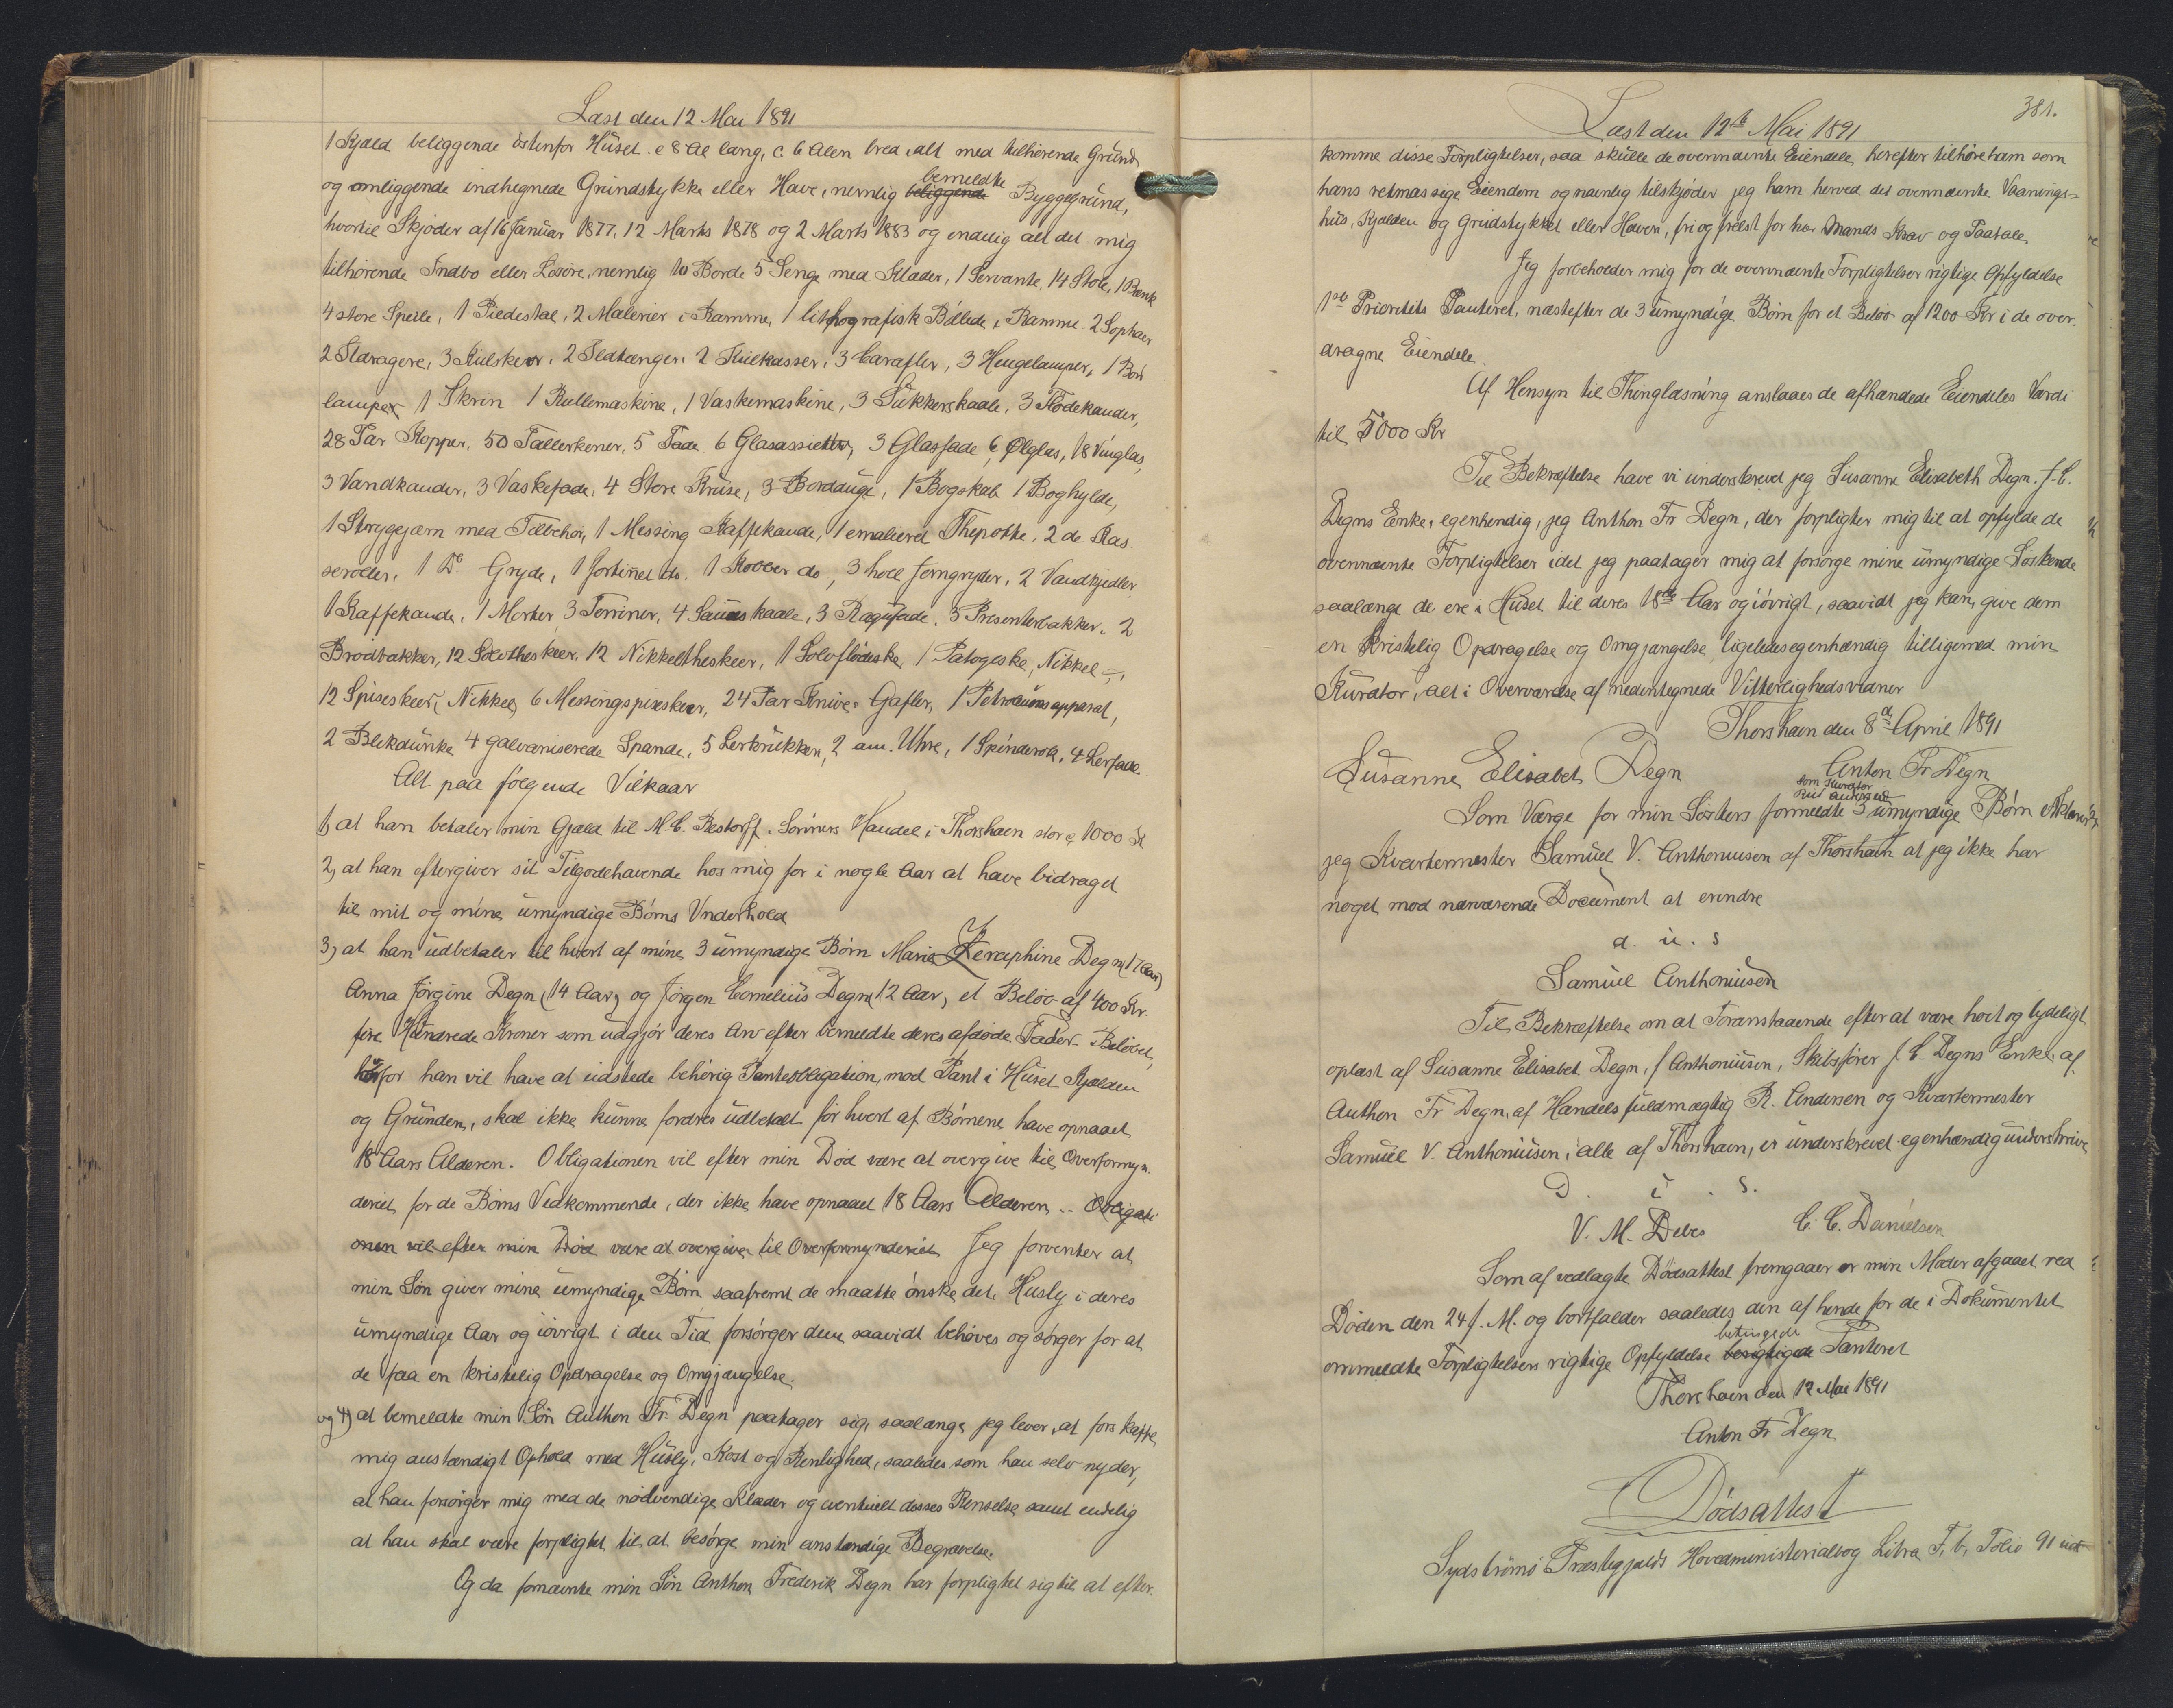 Læst den 12 Mai 1891
1 Kjæld beliggende östenfor Huset c 8 Al lang, c 6 Alen bred, alt med tilhörende Grund
og omliggende indhegnede Grundstykke eller Have, nemlig beliggende bemeldte Byggegrund,
hvortil Skjöder af 16 Januar 1877, 12 Marts 1878 og 2 Marts 1883 og endelig alt det mig
tilhörende Indbo eller Lösöre, nemlig 10 Borde 5 Senge med Klæder, 1 Servante, 14 Stole, 1 Bænk
4 store Speile, 1 Piedestal, 2 Malerier i Ramme, 1 lithografisk Billede i Ramme 2 Sophaer
2 Ildragere, 3 Kulskeer, 2 Ildtænger, 2 Kulkasser, 3 Carafler, 3 Hengelamper, 1 Bord
lamper 1 Skrin 1 Rullemaskine, 1 Vaskemaskine, 3 Sukkerskaale, 3 Flödekander,
28 Par Kopper, 50 Tallerkener, 5 Fade 6 Glasassietter, 3 Glasfade 6 Ølglas, 18 Vinglas,
3 Vandkander, 3 Vaskefade, 4 Store Kruse, 3 Bordduge, 1 Bogskab 1 Boghylde,
1 Strygejærn med Tilbehör, 1 Messing Kaffekande, 1 emalieret Thepotte, 2 de Kas
seroller, 1 Do Gryde, 1 fortinnet do. 1 Kobber do, 3 holl Jerngryder, 2 Vandkjedler
1 Kaffekande, 1 Morter 3 Terriner, 4 Sauseskaale, 3 Ragufade, 3 Presenterbakker, 2
Brodbakker, 12 Sölvtheskeer, 12 Nikkeltheskeer, 1 Sölvflödeske, 1 Potageske, Nikkel
12 Spiseskeer, Nikkel, 6 Messingspiseskeer, 24 Par Knive & Gafler, 1 Petroleumsapparat,
2 Blikdunke 4 galvaniserede Spande, 5 Lerkrukker, 2 am. Uhre, 1 Spinderok, 4 Lerfade.
Alt paa fölgende Vilkaar
1, at han betaler min Gjæld til M. C. Restorff & Sönners Handel i Thorshavn stor c 1000 Kr
2, at han eftergiver sit Tilgodehavende hos mig for i nogle Aar at have bidraget
til mit og mine umyndige Börns Underhold
3, at han udbetaler til hvert af mine 3 umyndige Börn Marie Seraphine Degn (17 Aar)
Anna Jörgine Degn (14 Aar) og Jörgen Cornelius Degn (12 Aar) et Belöb af 400 Kr.
fire Hundrede Kroner som udgjör deres Arv efter bemeldte deres afdöde Fader. Belöbet,
hvorfor han vil have at udstede behörig Panteobligation, mod Pant i Huset Kjælden
og Grunden, skal ikke kunne fordres udbetalt för hvert af Börnene have opnaaet
18 Aars Alderen. Obligationen vil efter min Död være at overgive til Overformyn-
deriet for de Börns Vedkommende, der ikke have opnaaet 18 Aars Alderen. Obligati
onen vil efter min Död være at overgive til Overformynderiet Jeg forventer at
min Sön giver mine umyndige Börn, saafremt de maatte önske det, Husly i deres
umyndige Aar og iövrigt i den Tid forsörger dem saavidt behöves og sörger for at
de faa en kristelig Opdragelse og Omgjængelse.
og 4) at bemeldte min Sön Anthon Fr. Degn paatager sig, saalænge jeg lever, at forskaffe
mig anstændigt Ophold med Husly, Kost og Renlighed, saaledes som han selv nyder,
at han forsörger mig med de nödvendige Klæder og eventuelt disses Renselse samt endelig
at han skal være forpligtet til at besörge min anstændige Begravelse.
Og da fornævnte min Sön Anthon Frederik Degn har forpligtet sig til at efter-
381.
Læst den 12te Mai 1891
komme disse Forpligtelser, saa skulle de ovennævnte Eiendele herefter tilhöre ham som
hans retmæssige Eiendom og navnlig tilskjöder jeg ham herved det ovennævnte Vaanings-
hus, Kjælden og Grundstykket eller Haven, fri og frelst for hver Mands Krav og Paatale.
Jeg forbeholder mig for de ovennævnte Forpligtelsers rigtige Opfyldelse
1ste Prioritets Panteret, næstefter de 3 umyndige Börn for et Belöb af 1200 Kr i de over-
dragne Eiendele.
Af Hensyn til Thinglæsning anslaaes de afhændede Eiendeles Værdi
til 5000 Kr
Til Bekræftelse have vi underskrevet jeg Susanne Elisabeth Degn, J. C.
Degns Enke, egenhendig, jeg Anthon Fr Degn, der forpligter mig til at opfylde de
ovennævnte Forpligtelser idet jeg paatager mig at forsörge mine umyndige Söskende
saalænge de ere i Huset til deres 18de Aar og iövrigt, saavidt jeg kan, give dem
en kristelig Opdragelse og Omgjængelse, ligeledes egenhændig tilligemed min
Kurator, alt i Overværelse af nedentegnede Vitterlighedsvidner
Thorshavn den 8de April 1891
Susanne Elisabet Degn Anton Fr Degn
som Kurator
Som Værge for min Sösters formeldte 3 umyndige Börn erklærer
jeg Kvartermester Samuel V. Anthoniusen af Thorshavn at jeg ikke har
noget mod nærværende Document at erindre
d. u. s
Samuel Anthoniusen
Til Bekræftelse om at Foranstaaende efter at være höit og tydeligt
oplæst af Susanne Elisabet Degn, f Anthoniusen, Skibsförer J. C. Degns Enke, af
Anthon Fr Degn, af Handelsfuldmægtig R. Andersen og Kvartermester
Samuel V. Anthoniusen, alle af Thorshavn, er underskrevet egenhændig underskrive
D. u. s.
V. M. Debes C. C. Danielsen
Som af vedlagte Dödsattest fremgaaer er min Moder afgaaet ved
Döden den 24 f. M. og bortfalder saaledes den af hende for de i Dokumentet
ommeldte Forpligtelsers rigtige Opfyldelse besigtigede betingede Panteret
Thorshavn den 12 Mai 1891
Anton Fr Degn
Dödsattest
Sydströmö Præstegjælds Hovedministerialbog Litra F, b, Folio 91